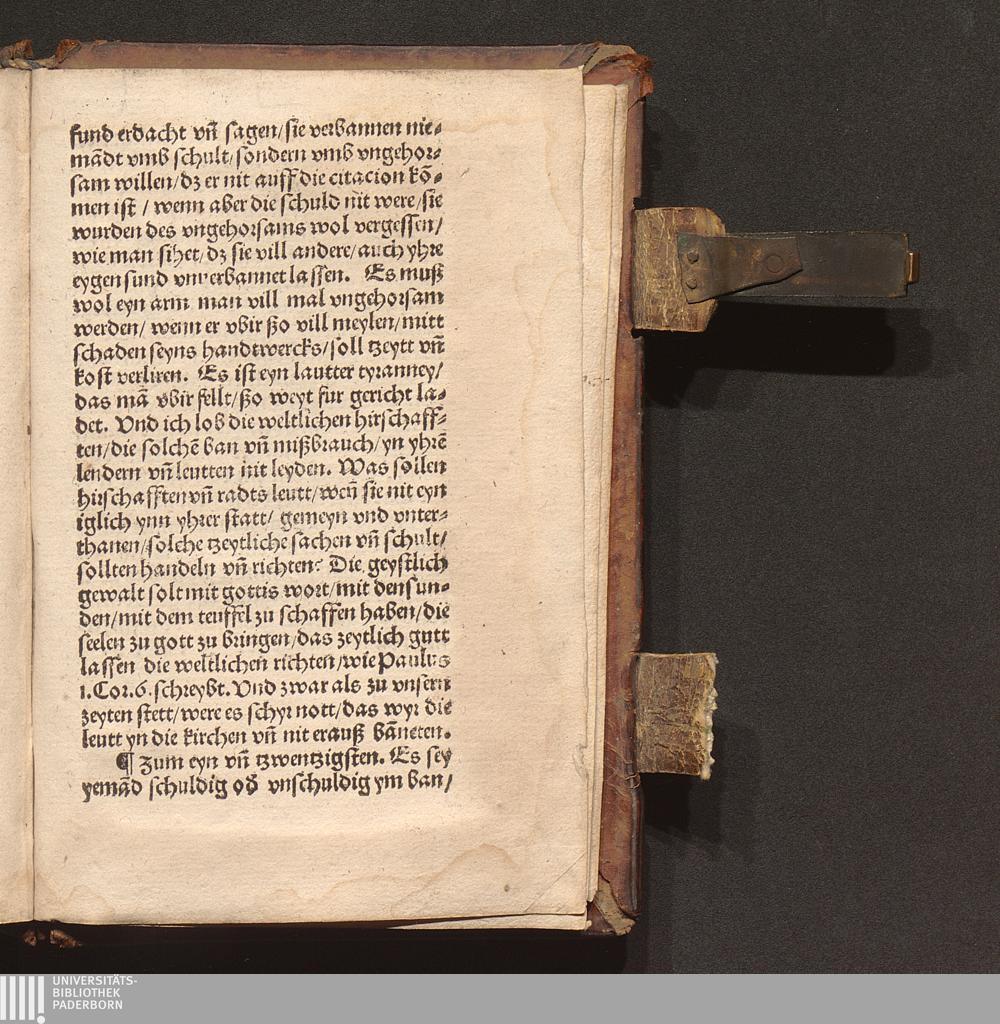 fund erdacht vn̄ sagen/ sie verbannen nie⸗
mādt vmb schult/ sondern vmb vngehor⸗
sam willen/ dz er nit auff die citacion kō⸗
men ist / wenn aber die schuld nit were/ sie
wurden des vngehorsams wol vergessen/
wie man sihet/ dz sie vill andere/ auch yhre
eygen sund vnverbannet lassen. Es muß
wol eyn arm man vill mal vngehorsam
werden/ wenn er vbir ßo vill meylen/ mitt
schaden seyns handtwercks/ soll tzeytt vn̄
kost verliren. Es ist eyn lautter tyranney/
das mā vbir fellt/ ßo weyt fur gericht la⸗
det. Vnd ich lob die weltlichen hirschaff⸗
ten/ die solchē ban vn̄ mißbrauch/ yn yhrē
lendern vn̄ leutten nit leyden. Was sollen
hirschafften vn̄ radts leutt/ wen̄ sie nit eyn
iglich ynn yhrer statt/ gemeyn vnd vnter⸗
thanen/ solche tzeytliche sachen vn̄ schult/
sollten handeln vn̄ richten? Die geystlich
gewalt solt mit gottis wort/ mit den sun⸗
den/ mit dem teuffel zu schaffen haben/ die
seelen zu gott zu bringen/ das zeytlich gutt
lassen die weltlichen richten/ wie Paulus
1. Cor. 6. schreybt. Vnd zwar als zu vnsern
zeyten stett/ were es schyr nott/ das wyr die
leutt yn die kirchen vn̄ nit erauß bāneten.
¶ Zum eyn vn̄ tzwentzigsten. Es sey
yemād schuldig od̄ vnschuldig ym ban/
UNIVERSITÄTS-
BIBLIOTHEK
PADERBORN